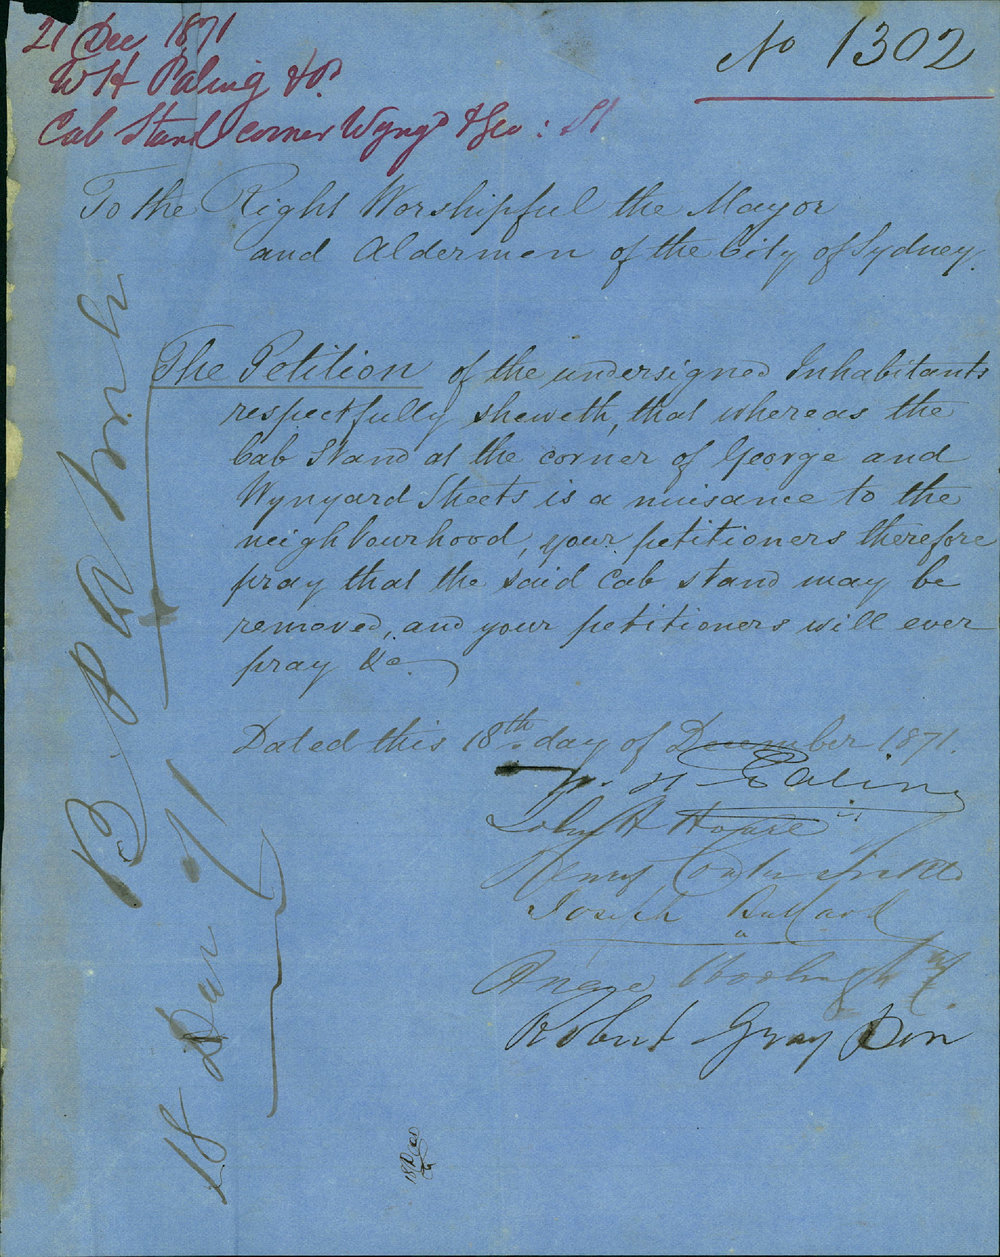 21 Dec 1871
W H Paling & 
Cab Stand corner Wyngd & Geo: St
No 1302
To the Right Worshipful the Mayor
and Aldermen of the City of Sydney.
The Petition of the undersigned Inhabitants
respectfully sheweth, that whereas the
Cab Stand at the corner of George and
Wynyard Streets is a nuisance to the
neighbourhood, your petitioners therefore
pray that the said Cab stand may be
removed, and your petitioners will ever
pray &c
Dated this 18th day of December 1871.
W. H. Paling
John H
Henry
Joseph Bullard
Robert Gray
18
71